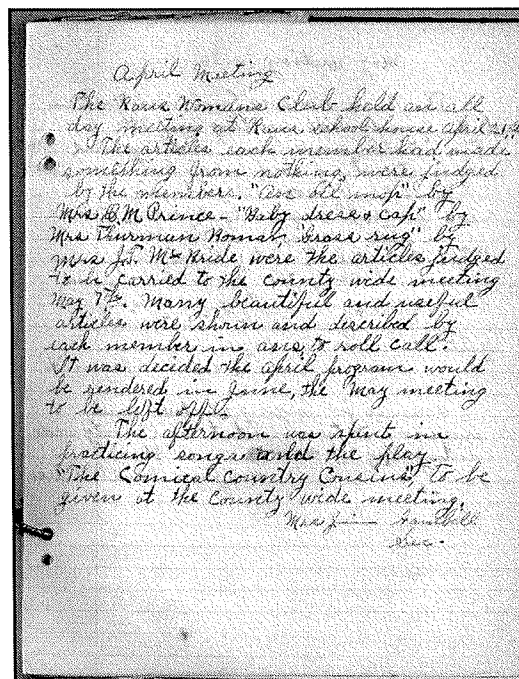 April Meeting
The Womans Club held an all
day meeting at school house April 21st
The articles each member had made
something from nothing, were judged
by the members. "An oil mop" by
Mrs B. M. Prince - "Baby dress & cap" by
Mrs Thurman "Grass rug" by
Mrs J. McBride were the articles judged
to be carried to the county wide meeting
May 7th. Many beautiful and useful
articles were shown and described by
each member in ans. to roll call.
It was decided the April program would
be rendered in June, the May meeting
to be left off.
The afternoon was spent in
practicing songs and the play
"The Comical Country Cousins", to be
given at the County wide meeting.
Mrs Gambill
Sec.